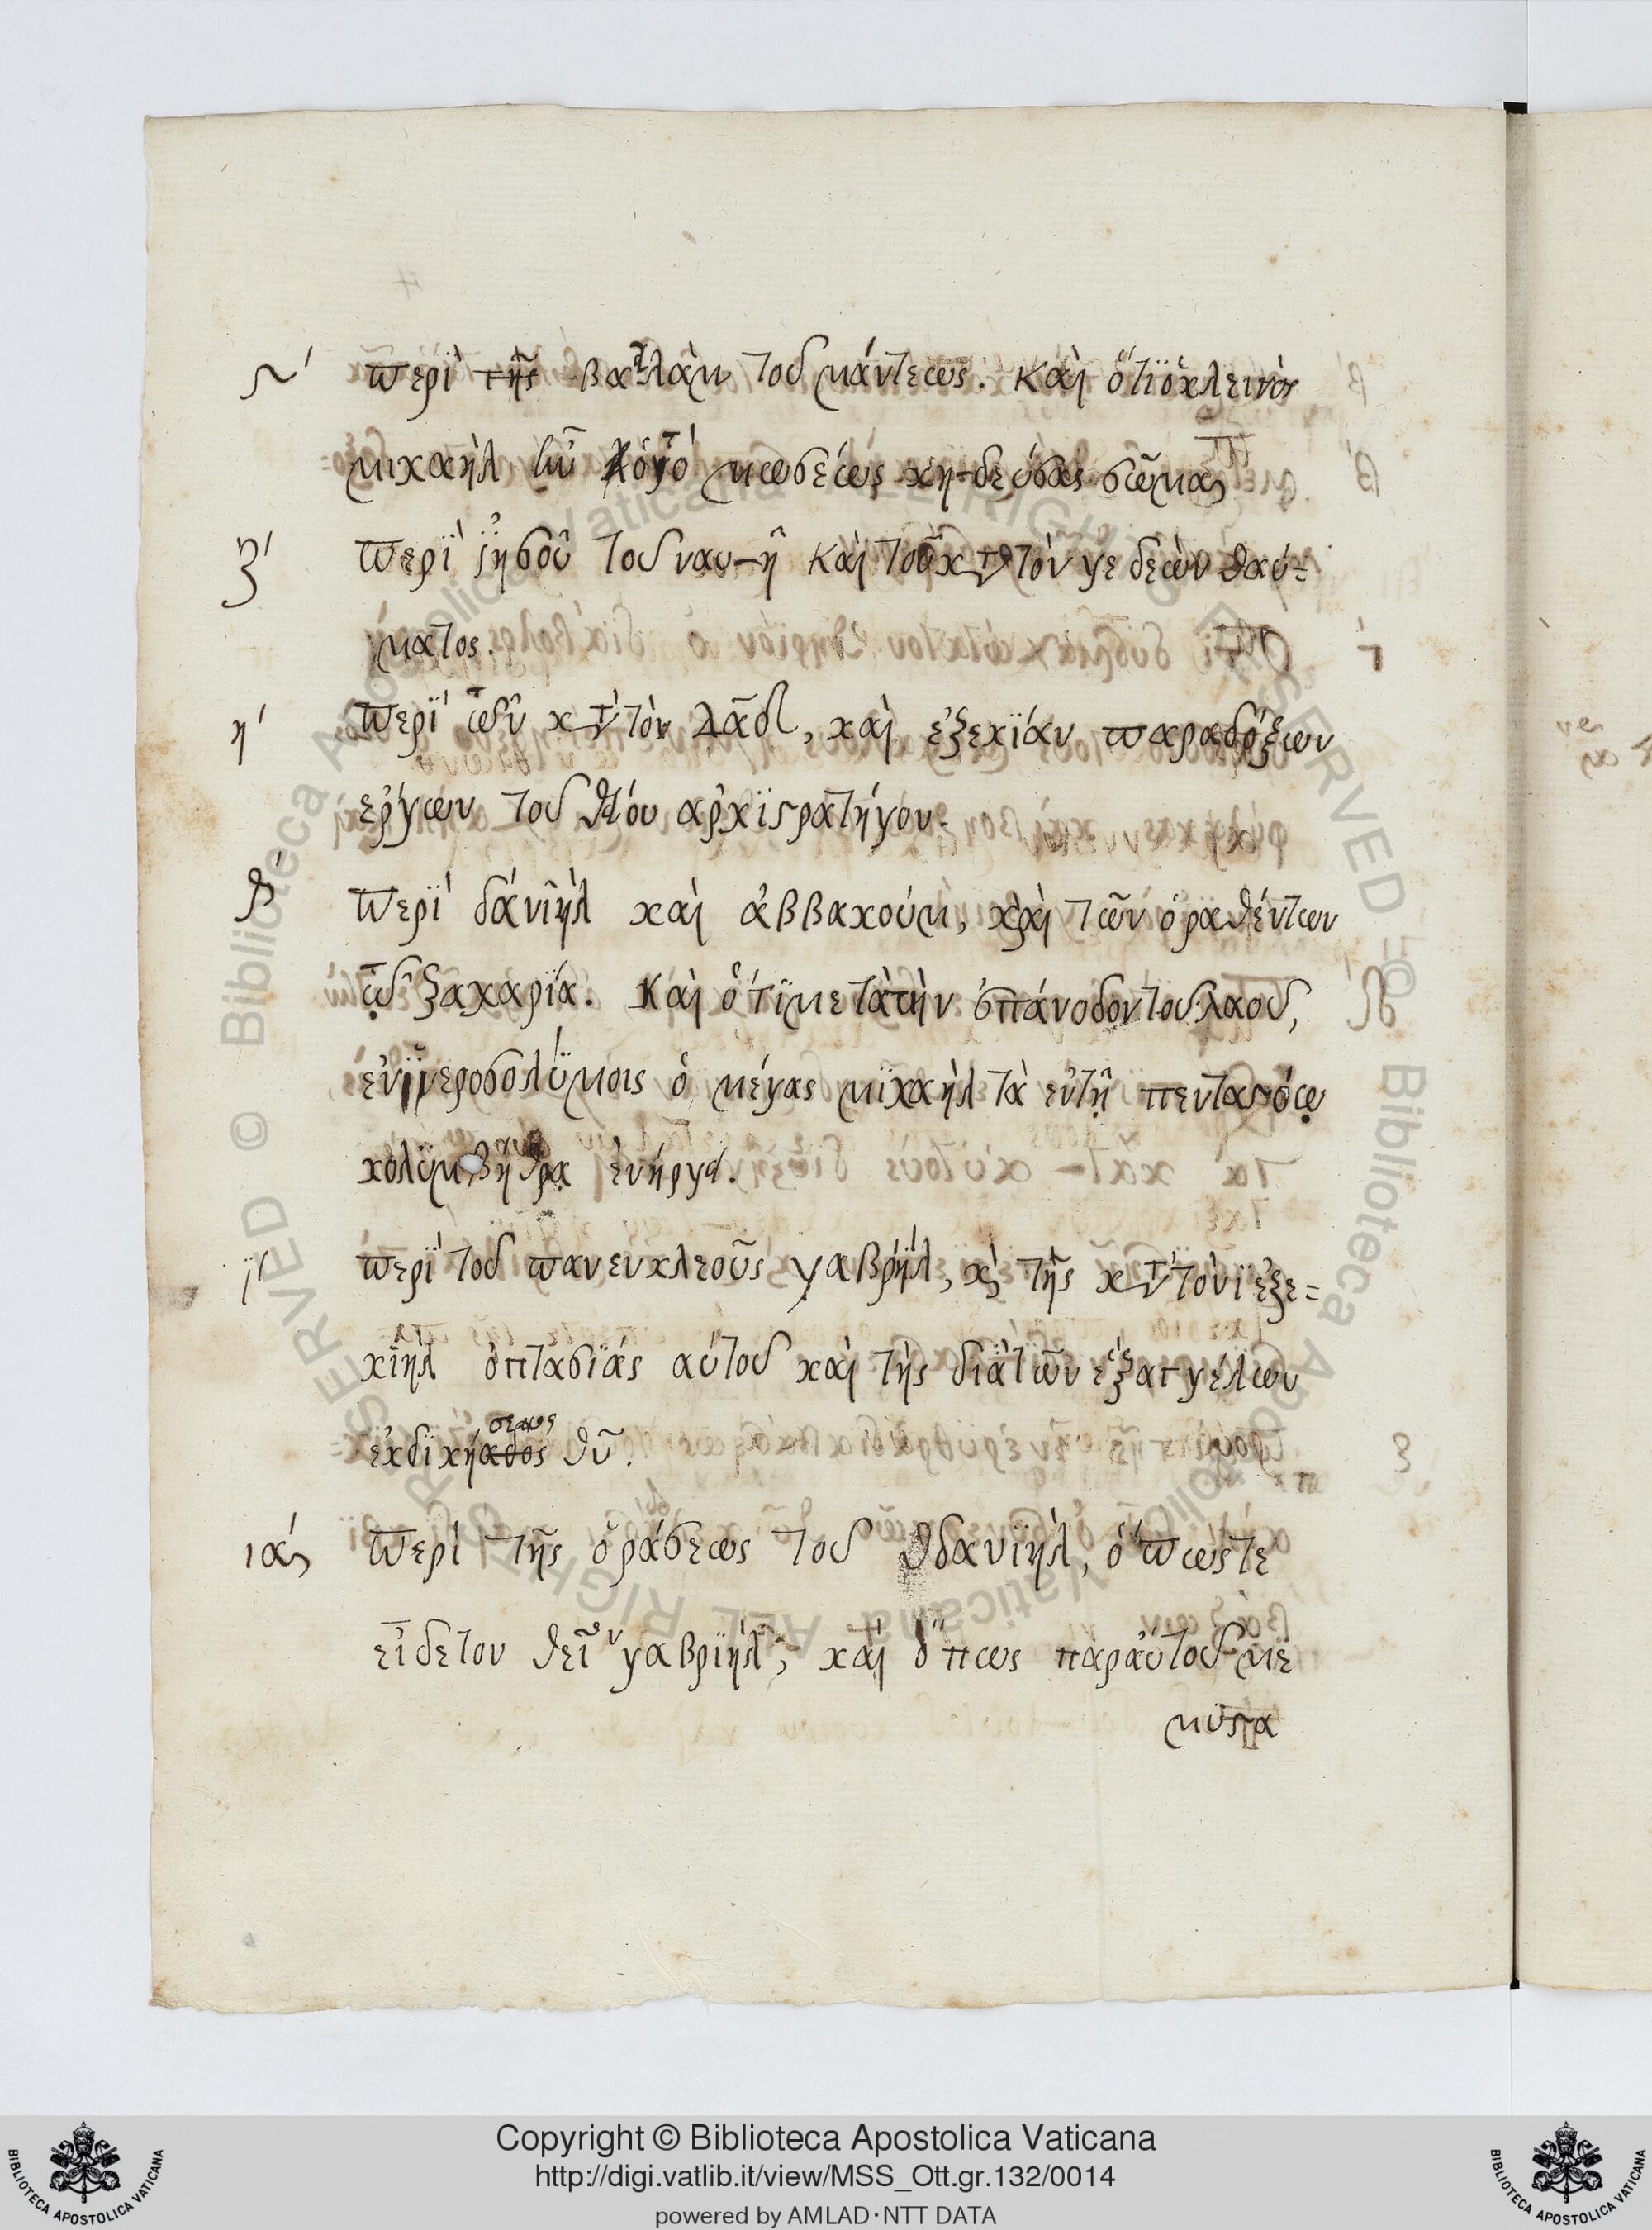 ϛ΄ περὶ τῆς βαλαὰμ τοῦ μάντεως. καὶ ὅτι ὁ κλεινὸς
μιχαὴλ ἦν ὁ τὸ μωσέως κηδεύσας σῶμα
ζ΄ περὶ ἰησοῦ τοῦ ναυῆ καὶ τοῦ κατὰ τὸν γεδεὼν θαύ=
ματος.
η΄ περὶ τῶν κατὰ τὸν δᾶδ, καὶ ἐζεκίαν παραδόξων
ἔργων τοῦ θείου ἀρχιστρατήγου.
θ΄ περὶ δανιὴλ καὶ ἀββακούμ, καὶ τῶν ὁραθέντων
τῷ ζαχαρίᾳ. Καὶ ὅτι μετὰ τὴν ἐπάνοδον τοῦ λαοῦ,
ἐν ἱεροσολύμοις ὁ μέγας μιχαὴλ τὰ ἐν τῇ πενταστόῳ
κολυμβήθρᾳ ἐνήργει.
ι΄ περὶ τοῦ πανευκλεοῦς γαβριήλ, κὶ τῆς κατὰ τὸν ἰεζε=
κιὴλ ὀπτασίας αὐτοῦ καὶ τῆς διὰ τῶν ἓξ ἀγγέλων
ἐκδικήσεως θῦ.
ια΄ περὶ τῆς ὁράσεως τοῦ δανιὴλ, ὅπως τε
εἶδε τὸν θεῖον γαβριήλ, καὶ ὅπως παρ' αὐτοῦ με
μύστα
Copyright © Biblioteca Apostolica Vaticana
http://digi.vatlib.it/view/MSS_Ott.gr.132/0014
powered by AMLAD·NTT DATA
BIBLIOTECA APOSTOLICA VATICANA
BIBLIOTECA APOSTOLICA VATICANA